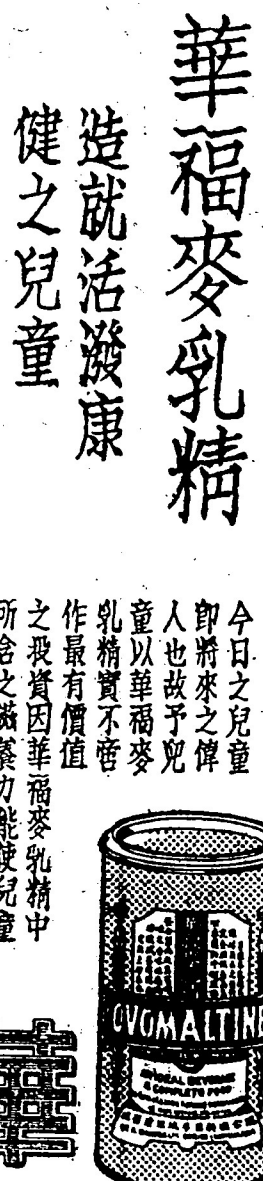 華福麥乳精
造就活潑康
健之兒童
今日之兒童
即將來之偉
人也故予兒
童以華福麥
乳精實不啻
作最有價值
之投資因華福麥乳精中
所含之滋養力能使兒童
OVOMALTINE
華